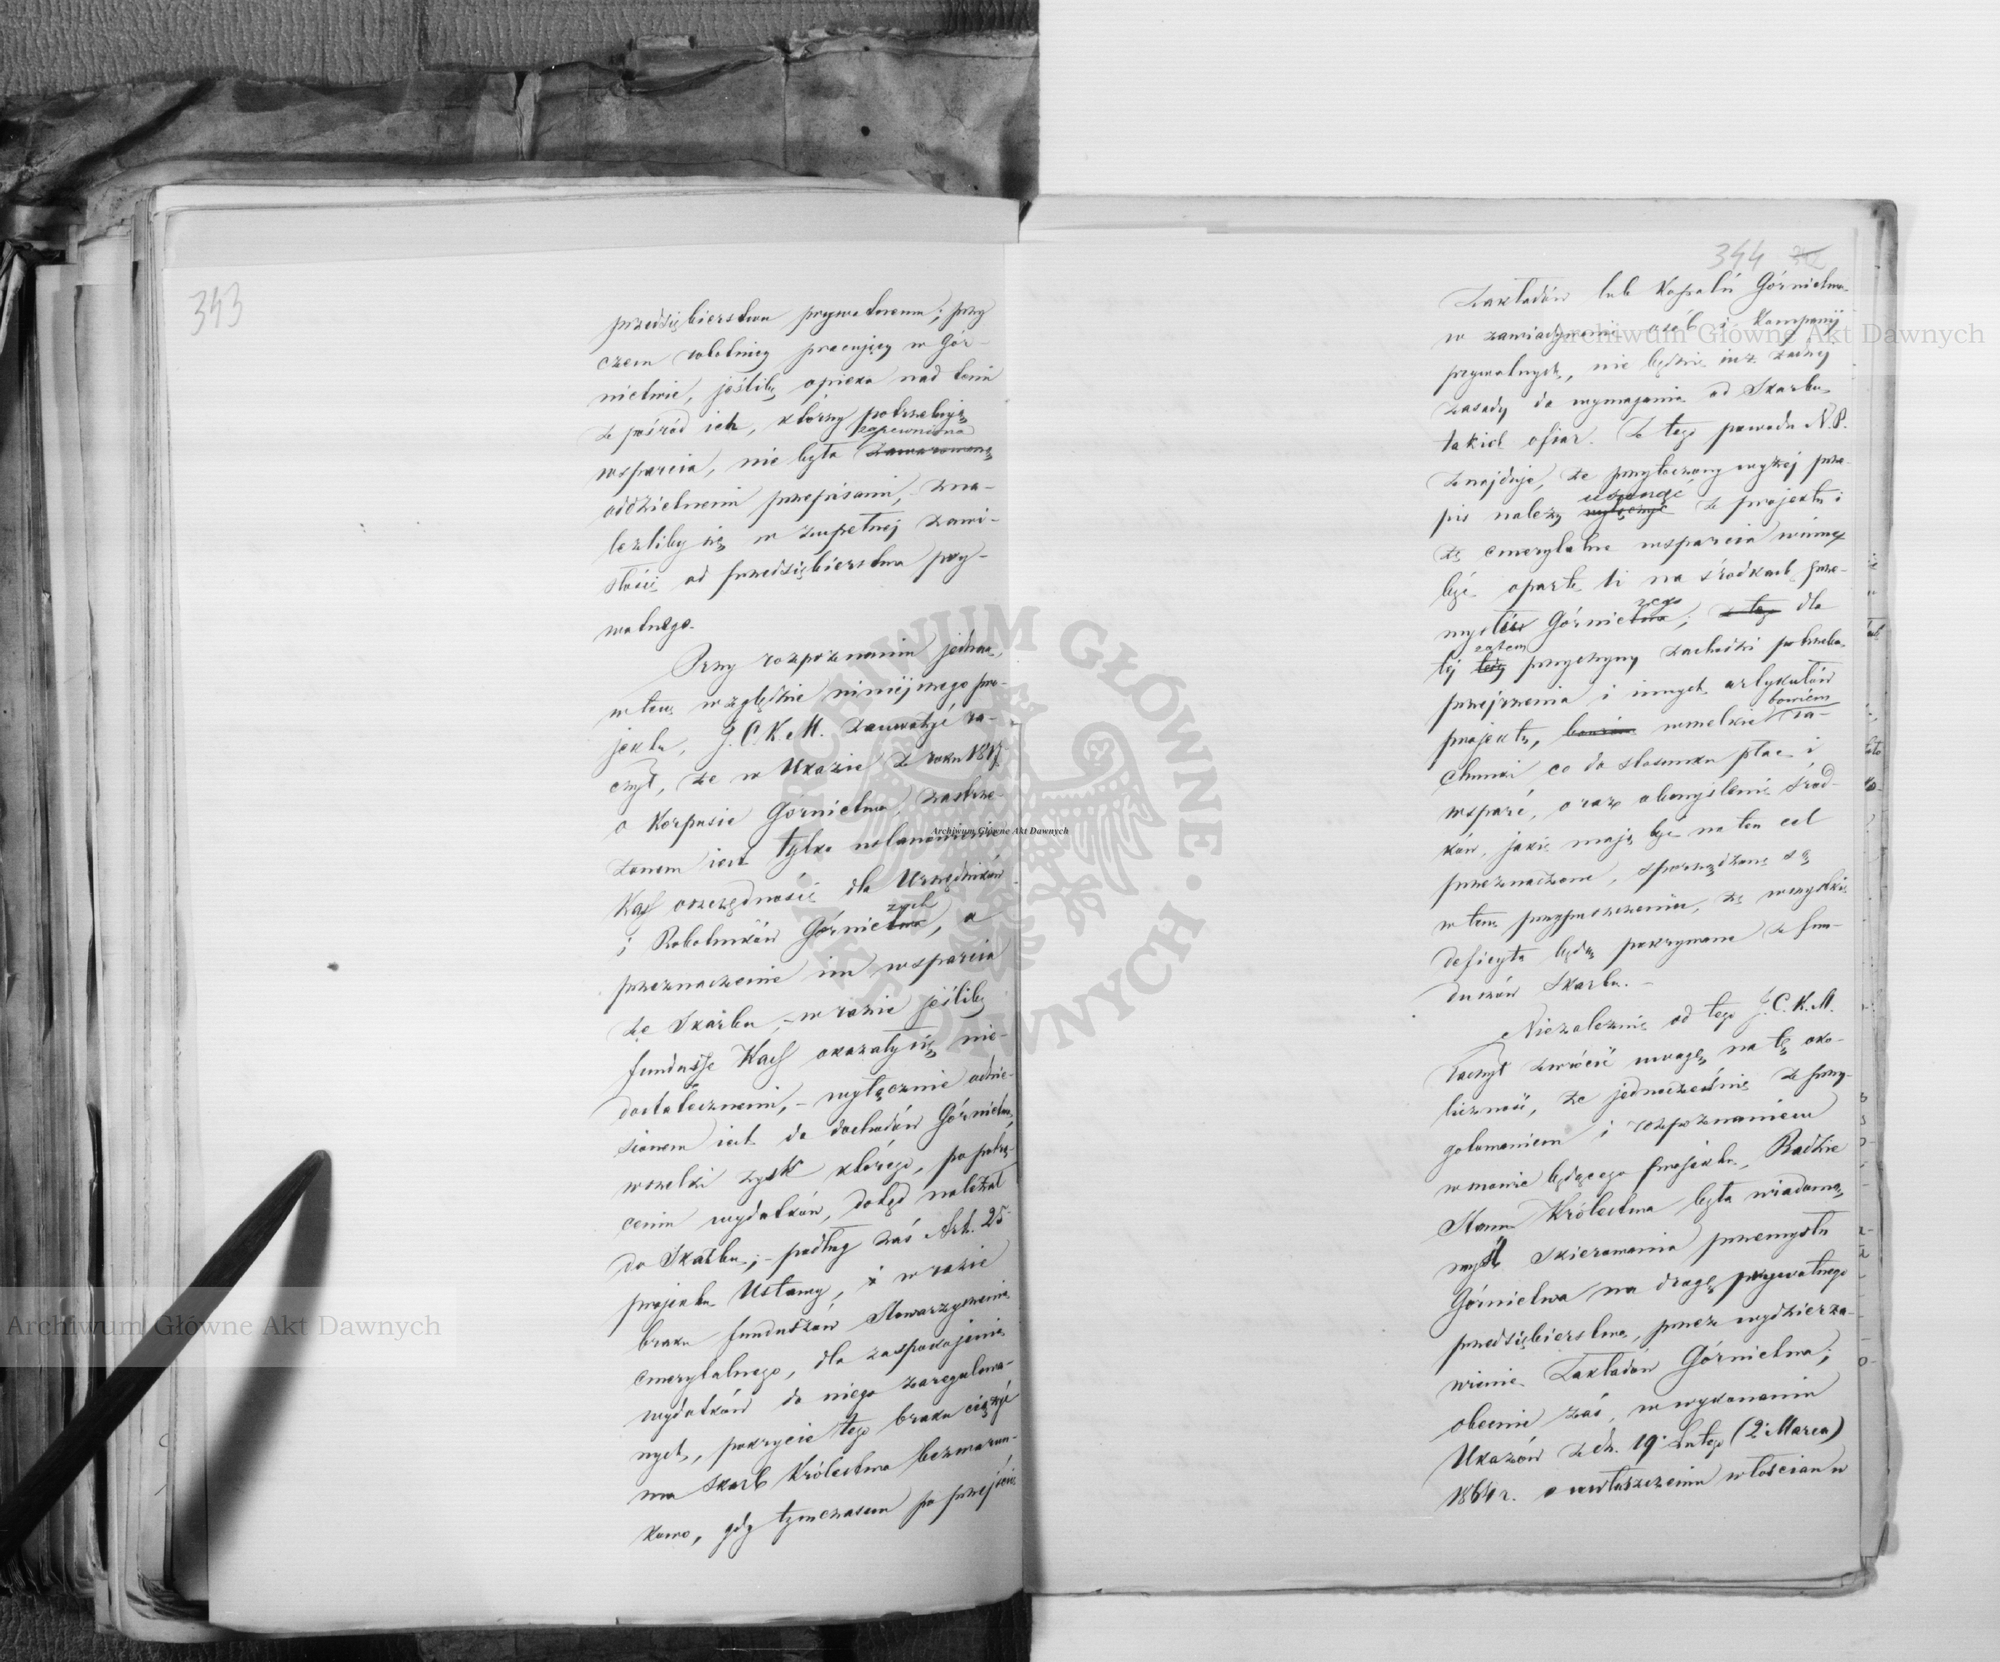 343
przedsiębierstwa prywatnemu; przy
czem robotnicy pracujący w Gór-
nictwie, jeśliby opieka nad temi
z pośród ich, którzy potrzebują
zapewniona
wsparcia, nie była zawarowaną
oddzielnemi przepisami, zna-
leźliby się w zupełnej zawi-
słości od przedsiębierstwa pry-
watnego.
Przy rozpoznaniu jednak,
w tem względzie niniejszego pro-
jektu, J.C.K.M. zauważyć ra-
czył, że w Ukazie z roku 1817
o Korpusie Górnictwa, zastrze-
żonem jest tylko ustanowienie
Kass oszczędności dla Urzędników
zych
i Robotników Górnictwa, a
przeznaczenie im wsparcia
ze Skarbu, – w razie jeśliby
fundusze Kass okazały się nie-
dostatecznemi, – wyłącznie odnie-
sionem jest do dochodów Górnictwa,
wszelki zysk którego, po potrą-
ceniu wydatków, dotąd należał
do Skarbu; – podług zaś Art. 25
projektu Ustawy, i w razie
braku funduszów Stowarzyszenia
emerytalnego, dla zaspokojenia
wydatków do niego zaregulowa-
nych, pokrycie tego braku ciążyć
ma Skarb Królestwa bezwarun-
kowo, gdy tymczasem po przejściu
344
Zakładów lub Kopalń Górnictwa
w zawiadywanie osób i Kompanij
prywatnych, nie będzie już żadnej
zasady do wymagania od Skarbu
takich ofiar. Z tego powodu N.P.
znajduje, że przytoczony wyżej prze-
usunąć
pis należy wyłączyć z projektu i
że emerytalne wsparcia winny
być oparte li na środkach prze-
zego
mysłu Górnictwa; z tej dla
zatem
tej też przyczyny zachodzi potrzeba
przejrzenia i innych artykułów
bowiem
projektu, bowiem wszelkie ra-
chunki co do stosunku płac i
wsparć, oraz obmyślenie środ-
ków, jakie mają być na ten cel
przeznaczone, sporządzone są
w tem przypuszczeniu, że wszystkie
deficyta będą pokrywane z fun-
duszów Skarbu. –
Niezależnie od tego J.C.K.M.
raczył zwrócić uwagę na tę oko-
liczność, że jednocześnie z przy-
gotowaniem i rozpoznaniem
w mowie będącego projektu, Radzie
Stanu Królestwa była wiadomą
myśl skierowania przemysłu
Górnictwa na drogę prywatnego
przedsiębierstwa, przez wydzierża-
wienie Zakładów Górnictwa;
obecnie zaś, w wykonaniu
Ukazów z dn. 19 Lutego (2 Marca)
1864 r. o uwłaszczeniu włościan w
Archiwum Główne Akt Dawnych
Archiwum Główne Akt Dawnych
Archiwum Główne Akt Dawnych
ARCHIWUM GŁÓWNE · AKT DAWNYCH ·